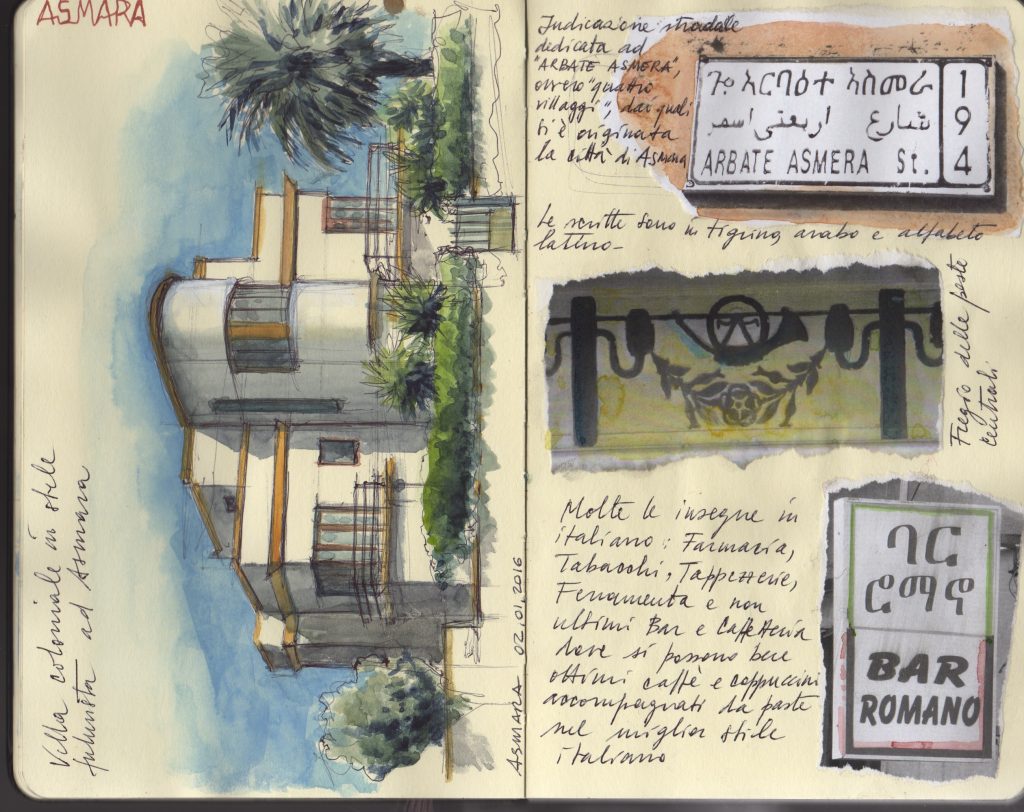 ASMARA
Villa coloniale in stile
futurista ad Asmara
ASMARA 02.01.2016
Indicazione stradale
dedicata ad
"ARBATE ASMERA",
ovvero "quattro
villaggi", dai quali
si è originata
la città di Asmara
ጎ፦ ኣርባዕተ ኣስመራ
شارع اربعتي اسمر
ARBATE ASMERA St.
194
Le scritte sono in tigrino, arabo e alfabeto
latino-
Fregio delle poste
centrali
Molte le insegne in
italiano: Farmacia,
Tabacchi, Tappezzerie,
Ferramenta e non
ultimi Bar e Caffetteria
dove si possono bere
ottimi caffè e cappuccini
accompagnati da paste
nel miglior stile
italiano
ባር
ሮማኖ
BAR
ROMANO